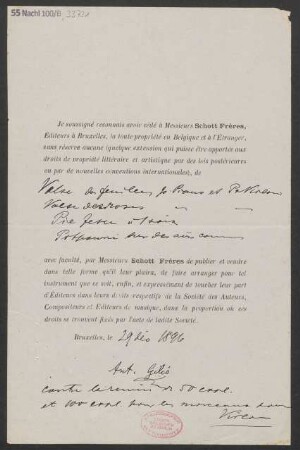 55 Nachl 100/B
Je soussigné reconnais avoir cédé à Messieurs Schott Frères,
Éditeurs à Bruxelles, la toute propriété en Belgique et à l'Étranger,
sans réserve aucune (quelque extension qui puisse être apportée aux
droits de propriété littéraire et artistique par des lois postérieures
ou par de nouvelles conventions internationales), de
Valse des feuilles p. Piano et
Valse des roses
Potpourri sur des airs connus
avec faculté, par Messieurs Schott Frères de publier et vendre
dans telle forme qu'il leur plaira, de faire arranger pour tel
instrument que ce soit, enfin, et expressément de toucher leur part
d'Éditeurs dans leurs droits respectifs de la Société des Auteurs,
Compositeurs et Éditeurs de musique, dans la proportion où ces
droits se trouvent fixés par l'acte de ladite Société.
Bruxelles, le 29 Dès 1896
Ant. Gilis
contre la remise de 50
et 100 tous les morceaux pour